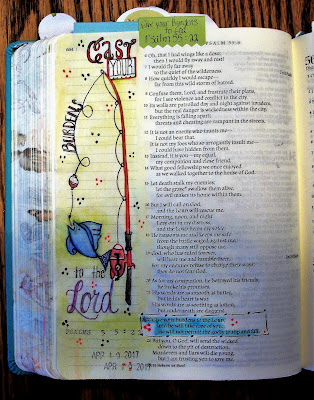 Give your Burdens
to God
Psalm 55:22
PSALM 55:6
Cast
YOUR
BURDENS
to the
Lord
PSALMS 55:22
APR 19 2017
APR 2017
6 Oh, that I had wings like a dove;
then I would fly away and rest!
7 I would fly far away
to the quiet of the wilderness.
8 How quickly I would escape—
far from this wild storm of hatred.
9 Confuse them, Lord, and frustrate their plans,
for I see violence and conflict in the city.
10 Its walls are patrolled day and night against invaders,
but the real danger is wickedness within the city.
11 Everything is falling apart;
threats and cheating are rampant in the streets.
12 It is not an enemy who taunts me—
I could bear that.
It is not my foes who so arrogantly insult me—
I could have hidden from them.
13 Instead, it is you—my equal,
my companion and close friend.
14 What good fellowship we once enjoyed
as we walked together to the house of God.
15 Let death stalk my enemies;
let the grave swallow them alive,
for evil makes its home within them.
16 But I will call on God,
and the Lord will rescue me.
17 Morning, noon, and night
I cry out in my distress,
and the Lord hears my voice.
18 He ransoms me and keeps me safe
from the battle waged against me,
though many still oppose me.
19 God, who has ruled forever,
will hear me and humble them.
For my enemies refuse to change their ways;
they do not fear God.
20 As for my companion, he betrayed his friends;
he broke his promises.
21 His words are as smooth as butter,
but in his heart is war.
His words are as soothing as lotion,
but underneath are daggers!
22 Give your burdens to the Lord,
and he will take care of you.
He will not permit the godly to slip and fall.
23 But you, O God, will send the wicked
down to the pit of destruction.
Murderers and liars will die young,
but I am trusting you to save me.